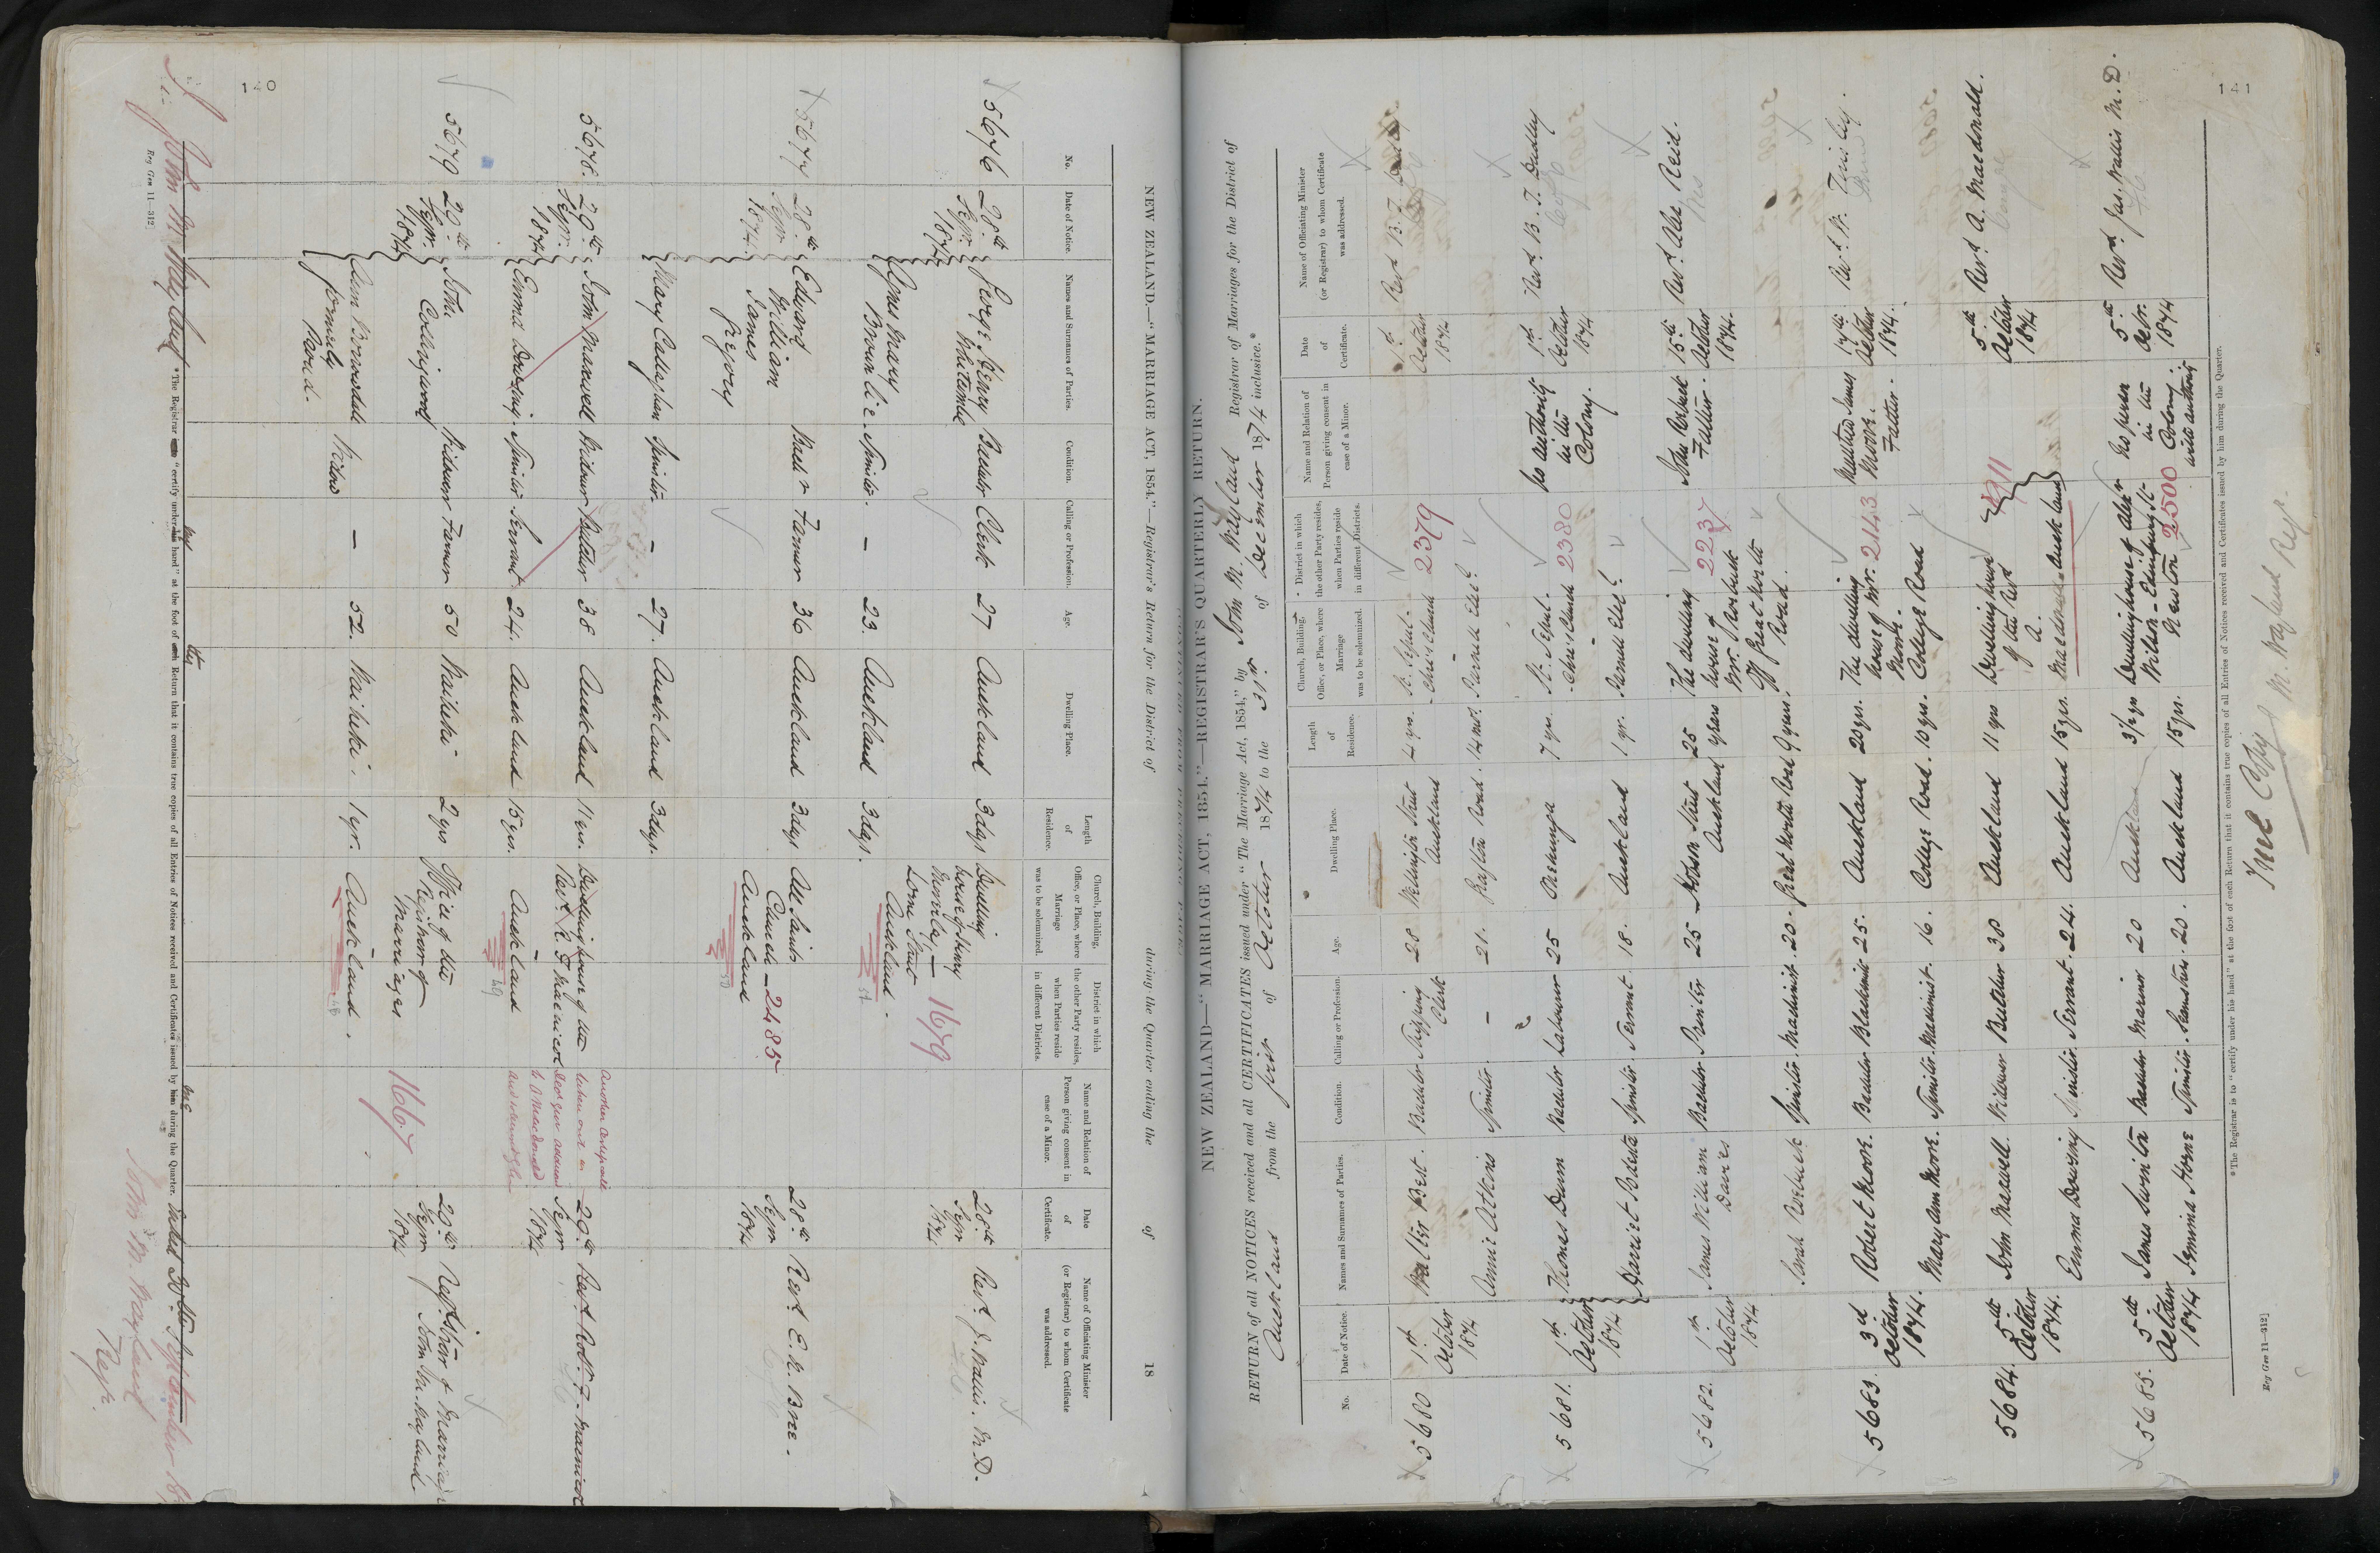 140
NEW ZEALAND.—"MARRIAGE ACT, 1854."—Registrar's Return for the District of during the Quarter ending the of 18
No.
Date of Notice.
Names and Surnames of Parties.
Condition.
Calling or Profession.
Age.
Dwelling Place.
Length of Residence.
Church, Building, Office, or Place, where Marriage was to be solemnized.
District in which the other Party resides, when Parties reside in different Districts.
Name and Relation of Person giving consent in case of a Minor.
Date of Certificate.
Name of Officiating Minister (or Registrar) to whom Certificate was addressed.
5676 28th Sepr. 1874 George Henry Whitcombe Bachelor Clerk 27 Auckland 3 days Dwelling house of Henry Lorne Street Auckland. 1659 28th Sepr 1874 Revd. J. Wallis. M.D.
Agnes Mary Brownlie Spinster. – 23. Auckland 3 days.
5677 28th Sepr 1874. Edward William James Gregory Bachr Farmer 36 Auckland 3 days All Saints Church – Auckland 2485 28th Sepr 1874 Revd. E. N. Bree.
Mary Callaghan Spinster. – 27. Auckland 3 days.
5678. 29th Sepr. 1874 John Maxwell Widower Butcher 38 Auckland 11 yrs. Dwelling house of the Revd. R. F. Macnicol Auckland 29th Sepr 1874 Revd Robt. F. Macnicol
Emma Dowsing. Spinster. Servant 24. Auckland 15 yrs.
Another certificate taken out on
to A Macdonald
5679 29th Sepr. 1874 John Collingwood Widower Farmer 50 Waiheke 2 yrs Office of the Registrar of Marriages Auckland. 1667 29th Sepr 1874 Registrar of Marriages John M. Wayland
Ann Borrowdale formerly Widow – 52. Waiheke. 1 yr.
*The Registrar is to "certify under his hand" at the foot of each Return that it contains true copies of all Entries of Notices received and Certificates issued by him during the Quarter.
Dated 30th September
John M. Wayland
Regr.
Reg Gen 11—312]
141
NEW ZEALAND.—"MARRIAGE ACT, 1854."—REGISTRAR'S QUARTERLY RETURN.
RETURN of all NOTICES received and all CERTIFICATES issued under "The Marriage Act, 1854," by John M. Wayland Registrar of Marriages for the District of
Auckland from the first of October 1874 to the 31st of December 1874 inclusive.*
No.
Date of Notice.
Names and Surnames of Parties.
Condition.
Calling or Profession.
Age.
Dwelling Place.
Length of Residence.
Church, Building, Office, or Place, where Marriage was to be solemnized.
District in which the other Party resides, when Parties reside in different Districts.
Name and Relation of Person giving consent in case of a Minor.
Date of Certificate.
Name of Officiating Minister (or Registrar) to whom Certificate was addressed.
5680 1st October 1874 Walter Best. Bachelor Shipping Clerk 28 Wellington Street Auckland 4 yrs. St. Sepul. Church 2379 1st October 1874 Revd B. T. Dudley
Annie Atkins Spinster. – 21. Road. 14 mos.
5681. 1st October 1874 Thomas Dunn Bachelor Labourer 25 Onehunga 7 yrs. St. Sepul. Church 2380 No authority in the Colony. 1st October 1874 Revd. B. T. Dudley
Harriet Spinster. Servant. 18. Auckland 1 yr.
5682. 1st October 1874 James William Davies Bachelor Printer 25 Hobson Street Auckland 25 years The dwelling house of Mr. Great North Road. 2237 John Father. 15th October 1874. Revd. Alex Reid.
Sarah Spinster. Machinist. 20. Great North Road 9 years.
5683. 3rd October 1874. Robert Moore. Bachelor Blacksmith 25. Auckland 20 yrs. The dwelling house of Mr. Moore. College Road 2143 Matthew James Moore. Father. 17th October 1874. Revd. W.
Mary Ann Moore. Spinster. Machinist. 16. College Road. 10 yrs.
5684. 5th October 1874. John Maxwell. Widower Butcher 38 Auckland 11 yrs Dwelling house of the Revd A. Macdonald. Auckland 5th October 1874 Revd A. Macdonald.
Emma Dowsing Spinster. Servant. 24. Auckland 15 yrs.
5685. 5th October 1874 James Swinton Bachelor Mariner 20 Auckland 3½ yrs Dwelling house of Alexr Wilson – Edinburgh St. Newton 2500 No person in the Colony. with authority 5th Octr. 1874 Revd Jas. Wallis M.D.
Jemima Horne Spinster. 20. Auckland 15 yrs.
*The Registrar is to "certify under his hand" at the foot of each Return that it contains true copies of all Entries of Notices received and Certificates issued by him during the Quarter.
True Copy
M. Wayland Regr.
Reg Gen 11—312]